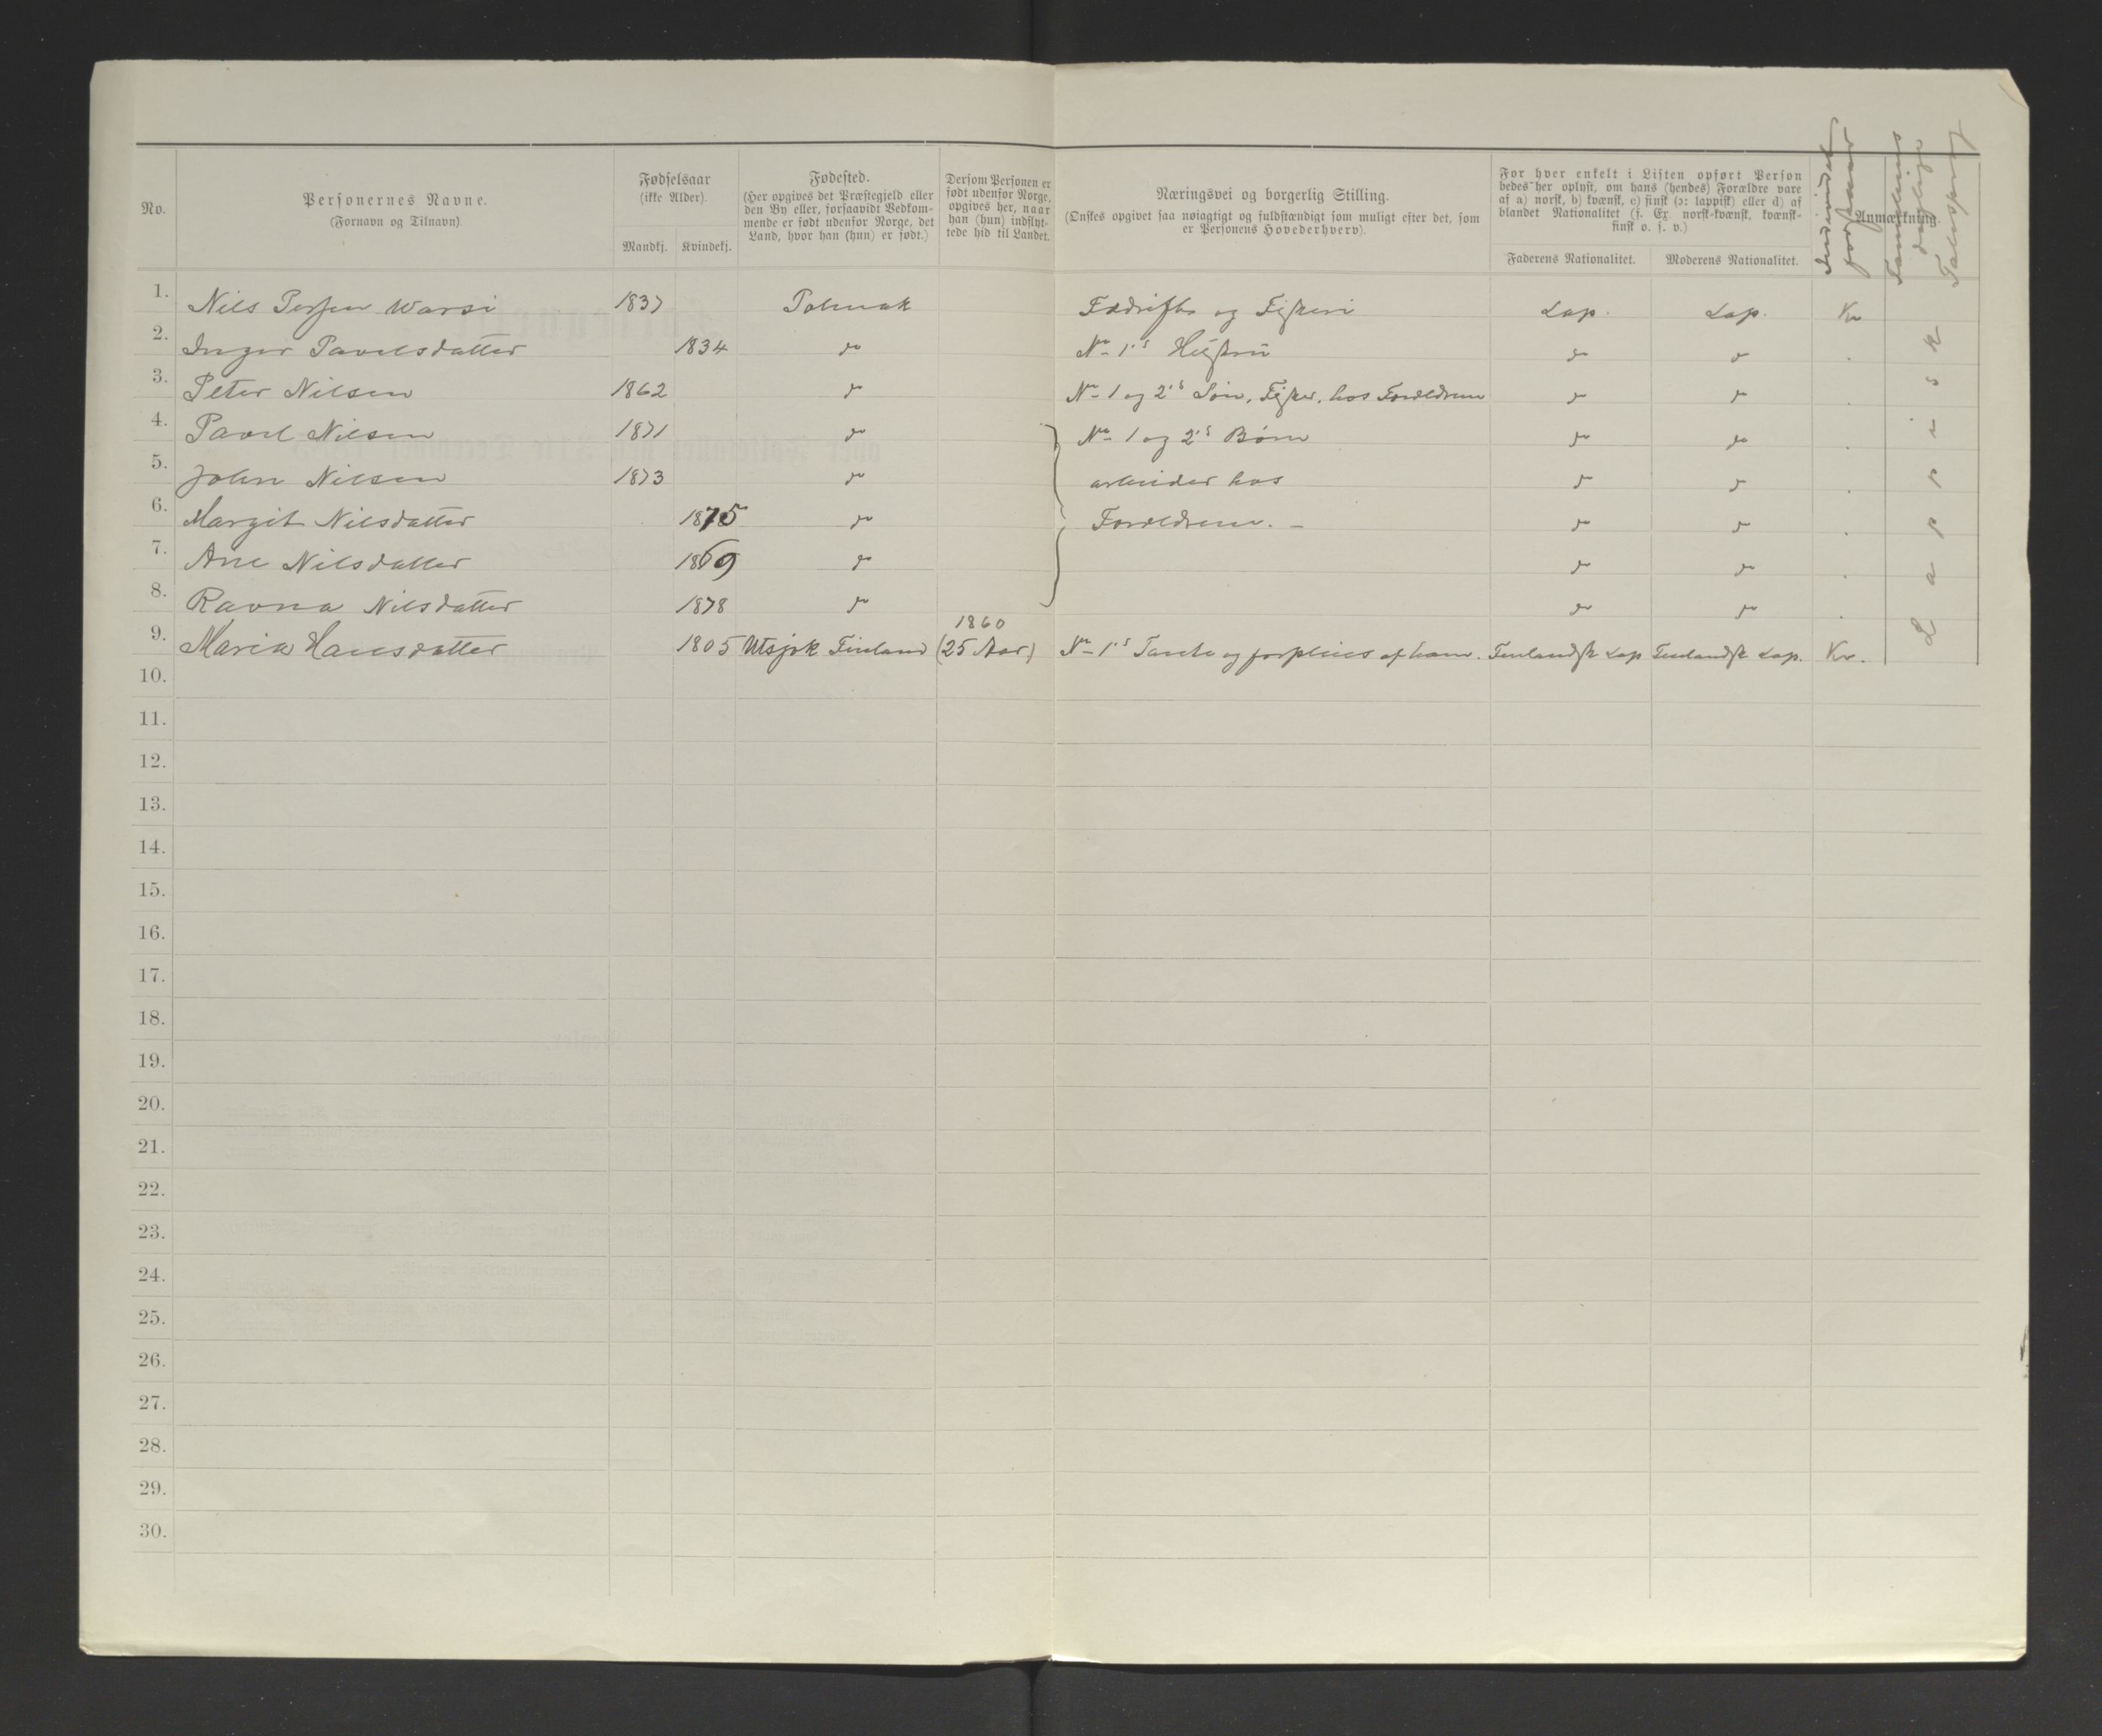 No.
Personernes Navne.
(Fornavn og Tilnavn)
Fødselsaar
(ikke Alder).
Mandkj. Kvindekj.
Fødested.
(Her opgives det Præstegjeld eller
den By eller, forsaavidt Vedkom-
mende er født udenfor Norge, det
Land, hvor han (hun) er født.)
Dersom Personen er
født udenfor Norge,
opgives her, naar
han (hun) indflyt-
tede hid til Landet.
Næringsvei og borgerlig Stilling.
(Ønskes opgivet saa nøiagtigt og fuldstændigt som muligt efter det, som
er Personens Hovederhverv).
For hver enkelt i Listen opført Person
bedes her oplyst, om hans (hendes) Forældre vare
af a) norsk, b) kvænsk, c) finsk (ɔ: lappisk) eller d) af
blandet Nationalitet (f. Ex norsk-kvænsk, kvænsk-
finsk o. s. v.)
Faderens Nationalitet. Moderens Nationalitet.
Anmærkning.
Individet
forstaar
Familiens
daglige
Talesprog
1. Nils Persen Warsi 1837 Polmak Fædrift og Fiskeri Lap. Lap. Kv
2. Inger Pavelsdatter 1834 do No 1's Hustru do do .
3. Peter Nilsen 1862 do No 1 og 2's Søn, Fisker, hos Forældrene do do .
4. Pavel Nilsen 1871 do No 1 og 2's Børn do do .
5. John Nilsen 1873 do arbeider hos do do .
6. Margit Nilsdatter 1875 do Forældrene. – do do .
7. Ane Nilsdatter 1869 do do do .
8. Ravna Nilsdatter 1878 do do do .
1860
9. Maria Hansdatter 1805 Utsjok Finland (25 Aar) No 1's Tante og forpleies af ham. Finlandsk Lap Finlandsk Lap. Kv.
Lappisk
10.
11.
12.
13.
14.
15.
16.
17.
18.
19.
20.
21.
22.
23.
24.
25.
26.
27.
28.
29.
30.